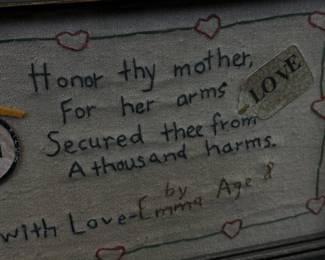 Honor thy mother,
For her arms
LOVE
Secured thee from
A thousand harms.
by
with Love-Emma Age 8